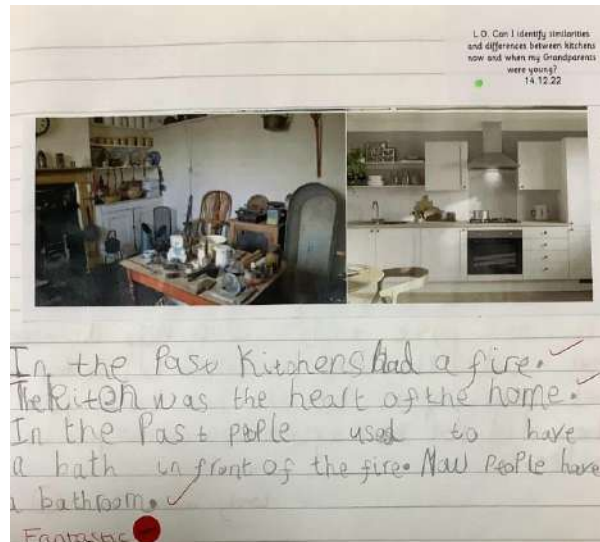 L.O. Can I identify similarities
and differences between kitchens
now and when my Grandparents
were young?
14.12.22
In the Past Kitchens had a fire.
The kiten was the heart of the home.
In the Past pople used to have
a bath in front of the fire. Now people have
a bathroom.
Fantastic